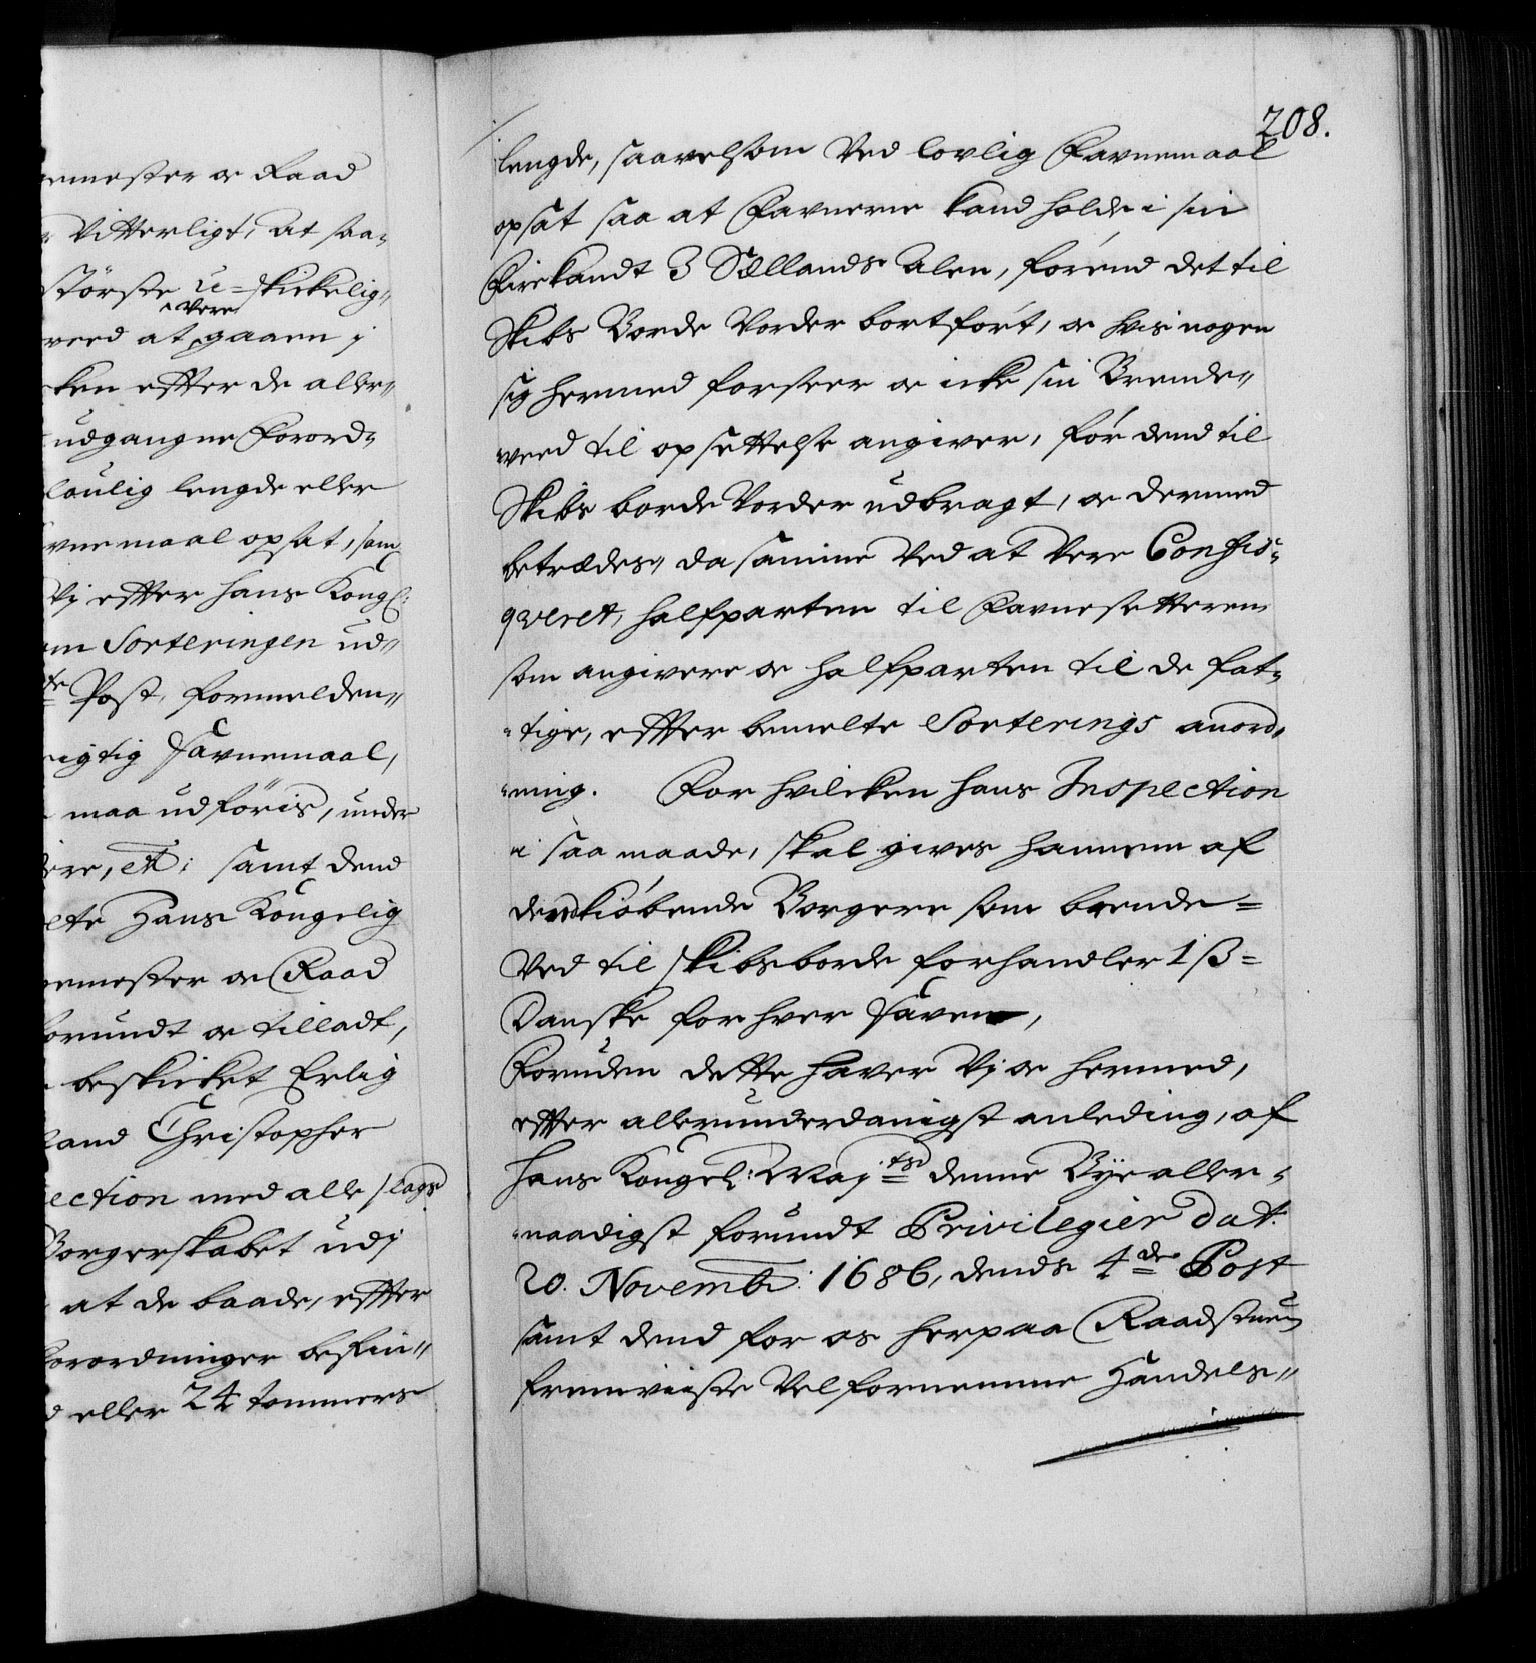 emester oc Raad
Vitterligt, At saa-
störste u-skickelig-
vere
veed at gaaen i
ken efter de aller-
udgangne Forord-
loulig lengde eller
vnemaal opsat, som
Vj efter hans Kongl:
Sorteringen ud-
te Post, formelden-
rigtig Favnemaal,
maa udföris, under
ere, etc: samt dend
elte Hans Kongelig
emester oc Raad
forundt oc tilladt,
beskicket Erlig
land Christopher
ection med alle slags
Borgerskabet udj
at de baade, efter
forordninger befin-
eller 24 tommers
208.
lengde, saavelsom Ved lovlig Favnemaal
opsat saa at Favnene kand holde i sin
Firekandt 3 Sællands Alen, förend det til
Skibs Borde Vorder bortfört, oc hvis nogen
sig hermed forseer oc icke sin Brende-
veed til opsettelse angiver, för dend til
Skibs borde Vorder udbragt, oc dermed
betrædes, da samme Ved at Vere Confis-
qveret, halfparten til Favnesetteren
som angivere oc halfparten til de fat-
-tige, effter bemelte Sorterings anord-
-ning. For hvilcken hans Inspection
i saa maade, skal gives hannem af
den kiöbende Borgere som brende-
Ved til skibsborde forhandler 1 ß
Danske for hver Faven,
Foruden dette haver Vj oc hermed,
effter allerunderdanigst anleding, af
Hans Kongel: Maj:ts denne Bye aller-
-naadigst forundt Privilegier dat:
20. Novemb: 1686, dends 4de Post
samt dend for os her paa Raadstuen
fremviiste Velfornemme Handels-